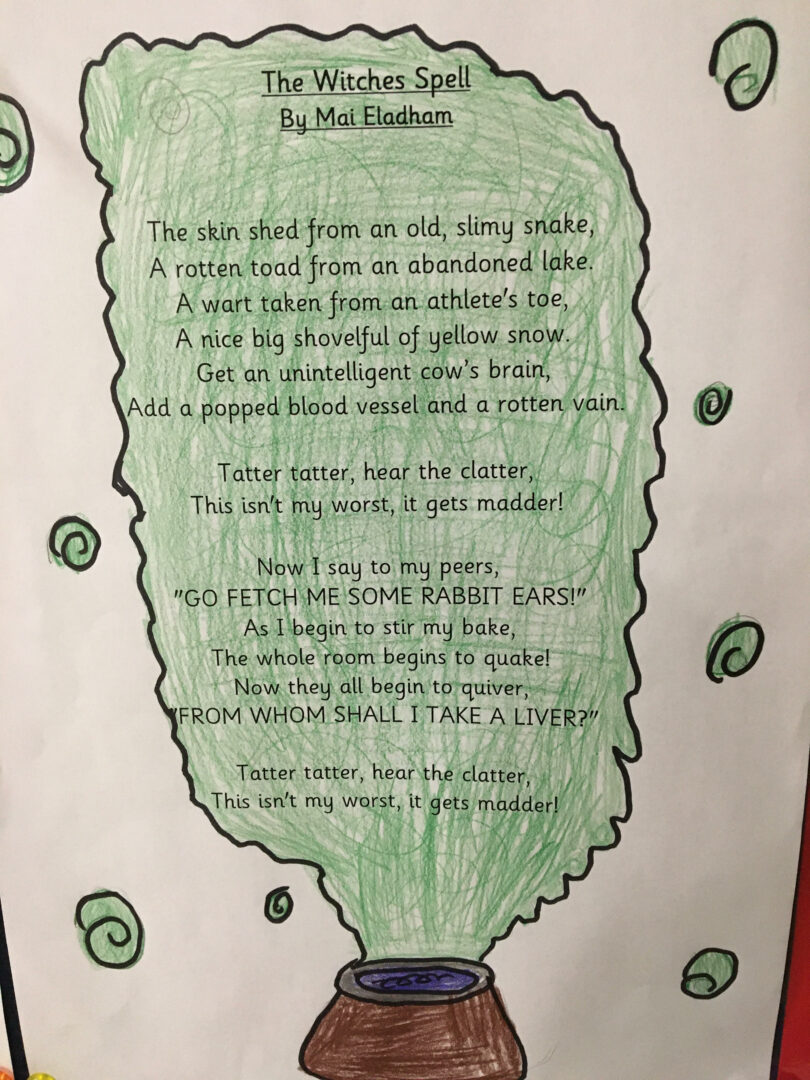 The Witches Spell
By Mai Eladham
The skin shed from an old, slimy snake,
A rotten toad from an abandoned lake.
A wart taken from an athlete's toe,
A nice big shovelful of yellow snow.
Get an unintelligent cow's brain,
Add a popped blood vessel and a rotten vain.
Tatter tatter, hear the clatter,
This isn't my worst, it gets madder!
Now I say to my peers,
"GO FETCH ME SOME RABBIT EARS!"
As I begin to stir my bake,
The whole room begins to quake!
Now they all begin to quiver,
"FROM WHOM SHALL I TAKE A LIVER?"
Tatter tatter, hear the clatter,
This isn't my worst, it gets madder!